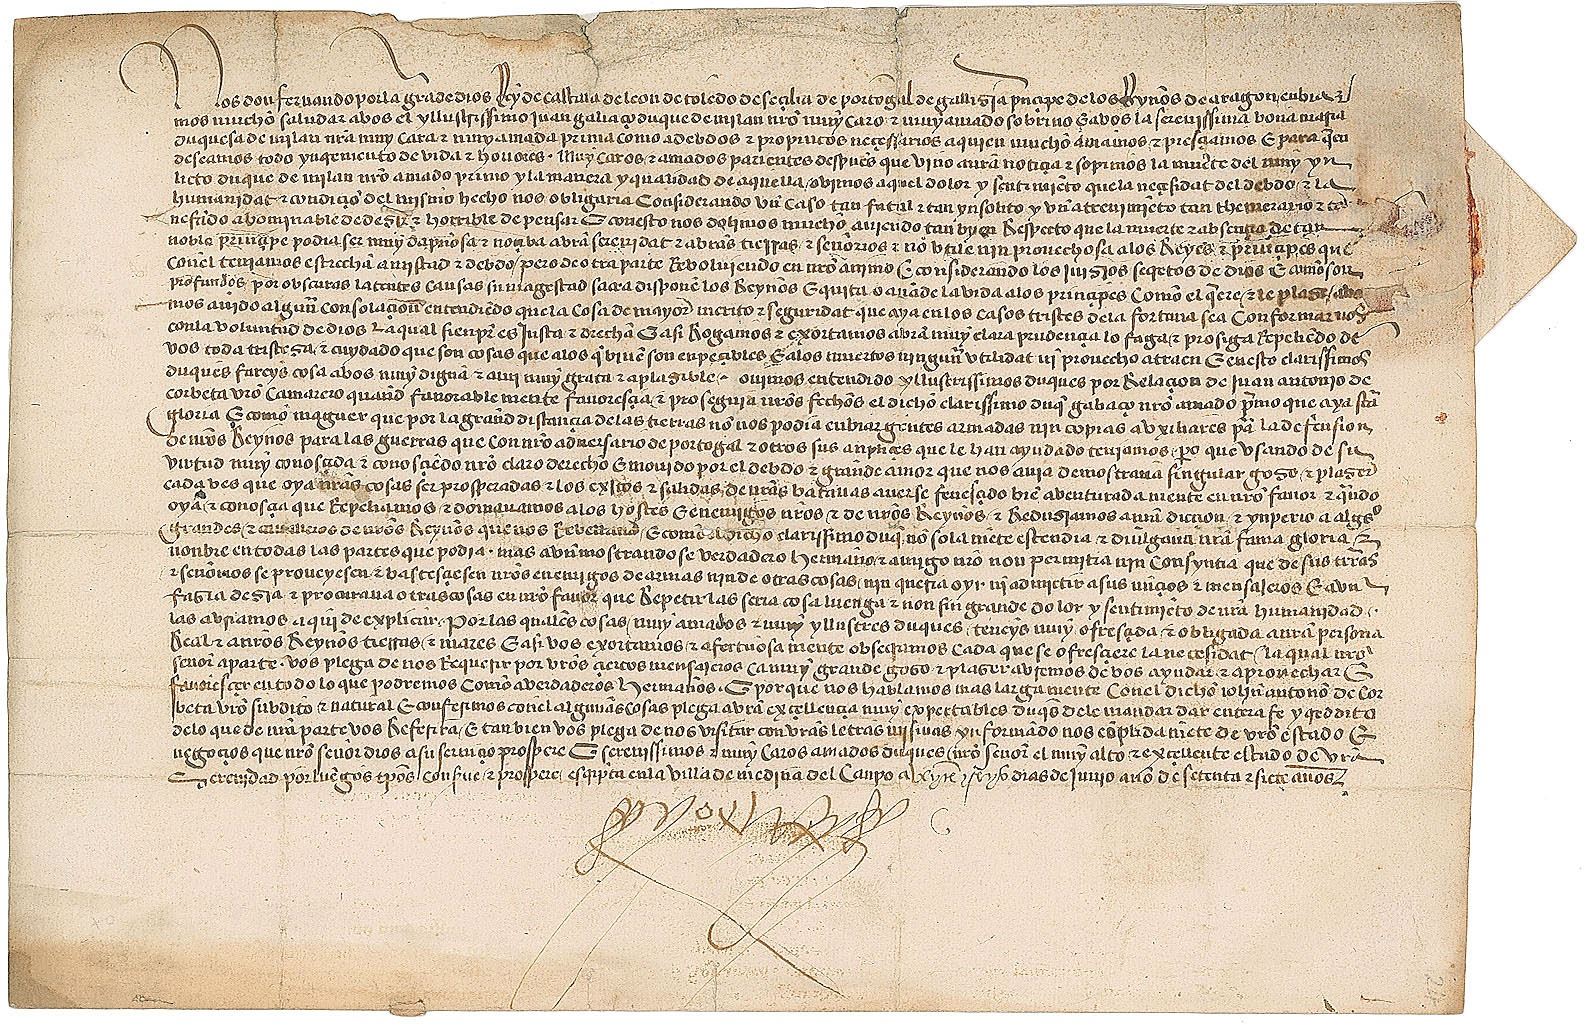 Nos don fernando por la gra de dios Rey de Castilla de leon de toledo de seçilia de portogal de gallizia prinçipe de los Reynos de aragon enbia
mos mucho saludar a vos el yllustrissimo juan galiaço duque de milan nro muy caro & muy amado sobrino E a vos la serenissima bona maria
duquesa de milan nra muy cara & muy amada prima como a debdos & propincos neçessarios a quien mucho amamos & presçiamos E para quien
deseamos todo de vida & honores. Muy caros & amados parientes despues que vino a nra notiçia & sopimos la muerte del muy yn
lito duque de milan nro amado primo y la manera y qualidad de aquella ovimos aquel dolor y sentimieto que la neçesidat del debdo & la
humanidat & condiçio del mismo hecho nos obligaria Considerando vn caso tan fatal & tan ynsolito y vn atrevimieto tan themerario &
nefando abominable de dezir & horrible de pensar E con esto nos dolimos mucho aviendo tan byen Respecto que la muerte & absençia de tan
noble prinçipe podia ser muy dapnosa & noçiva a vra serenidat & a vras tierras & señorios & no vtile nin prouechosa a los Reyes & prinçipes que
con el teniamos estrecha amistad & debdo pero de otra parte Reboluiendo en nro animo E considerando los juizios secretos de dios E como son
profundos por obscuras latentes causas su magestad sacra dispone los Reynos E quita o añade la vida a los prinçipes como el quiere & le plaze
mos avido algun consolaçion entendiendo que la cosa de mayor merito & seguridat que aya en los casos tristes de la fortuna sea conformarnos
con la voluntud de dios La qual sienpre es justa & derecha E asi Rogamos & exortamos a vra muy clara prudençia lo faga & prosiga Repeliendo de
vos toda tristeza & cuydado que son cosas que a los q biuen son enpeçibles E a los muertos ningun vtilidat ni prouecho atraen E en esto clarissimos
duques fareys cosa a vos muy digna & a mi muy grata & aplazible. ovimos entendido yllustrissimos duques por Relaçion de juan antonio de
corbeta vro camarero quand favorable mente favoresçia & proseguia nros fechos el dicho clarissimo duq galiaço nro amado primo que aya santa
gloria E como maguer que por la grand distançia de las tierras no nos podia enbiar gentes armadas nin copias avxiliares para la defension
de nros Reynos para las guerras que con nro adversario de portogal & otros sus que le han ayudado teniamos, pero que vsando de su
virtud muy conosçida & conosçiedo nro claro derecho E movido por el debdo & grande amor que nos avia demostrava singular gozo & plazer
cada ves que oya nras cosas ser prosperadas & los exitos & salidas de nras batallas averse feneçido bie aventurada mente en nro favor & quando
oya & conosçia que Repeliamos & domavamos a los hostes E enemigos nros & de nros Reynos & Reduziamos a nra diction & ynperio a algunos
grandes & cavalleros de nros Reynos que nos Rebellaron E como el dicho clarissimo duq no sola mete estendia & diuulgava nra fama gloria &
nonbre en todas las partes que podia. mas avn mostrandose verdadero hermano & amigo nro non permitia nin consyntia que de sus tierras
& señorios se proueyesen & basteçiesen nros enemigos de armas nin de otras cosas, nin queria oyr ni admetir a sus nunçios & mensajeros E avn
fazia dezia & procurava otras cosas en nro favor que Repetirlas seria cosa luenga & non sin grande dolor y sentimieto de nra humanidad.
las avriamos aqui de explicar. Por las quales cosas muy amados & muy yllustres duques, teneys muy ofresçida & obligada a nra persona
Real & a nros Reynos tierras & mares E asi vos exortamos & afectuosa mente obsecramos cada que se ofresçiere la neçesidat, la qual nro
señor aparte. vos plega de nos Requerir por vros çiertos mensajeros ca muy grande gozo & plazer avremos de vos ayudar & aprouechar E
favoresçer en todo lo que podremos como a verdaderos hermanos. E por que nos hablamos mas larga mente con el dicho iohn antonio de Cor
beta vro subdito & natural E conferimos con el algunas cosas plega a vra exçellençia muy expectables duqs de le mandar dar entera fe y credito
de lo que de nra parte vos Referira, E tan bien vos plega de nos visitar con vras letras missivas ynformando nos conplida mete de vro estado E
negoçios que nro señor dios a su seruiçio prospere E serenissimos & muy caros amados duques nro señor el muy alto & exçelente estado de vra
Serenidad por luengos tpos conserue & prospere, escripta en la villa de medina del Canpo a veynte y seys dias de junio año de setenta & siete años